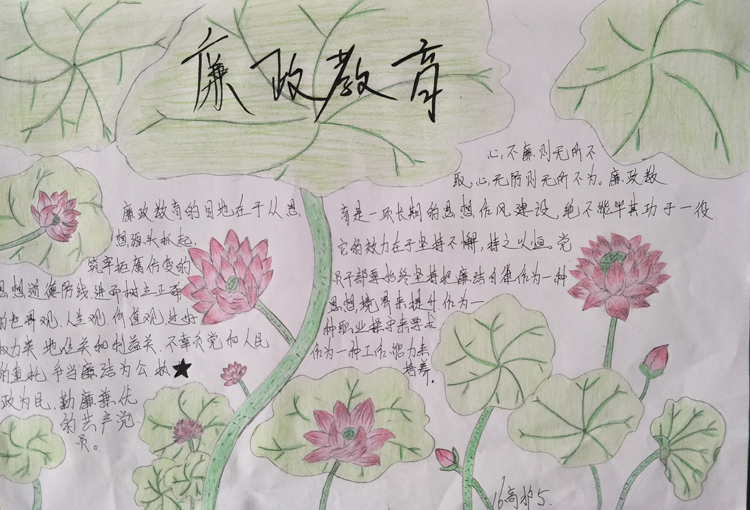 廉政教育
廉政教育的目地在于从思
想源头抓起,
筑牢拒腐防变的
思想道德防线,进而树立正确
的世界观,人生观,价值观,过好
权力关,地位关和利益关,不辜负党和人民
的重托,争当廉洁为公,执★
政为民,勤廉兼优
的共产党
员。
心,不廉则无所不
取,心,无防则无所不为。廉政教
育是一项长期的思想作风建设,绝不能毕其功于一役
它的效力在于坚持不懈,持之以恒。党
员干部要始终坚持把廉洁自律作为一种
思想境界来提升,作为一
种职业操守来要求
作为一种工作能力来
培养。
16高护5.